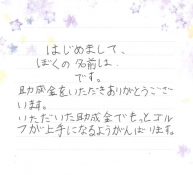 はじめまして、
ぼくの名前は、
です。
助成金をいただきありがとうござ
います。
いただいた助成金でもっとゴル
フが上手になるようがんばります。